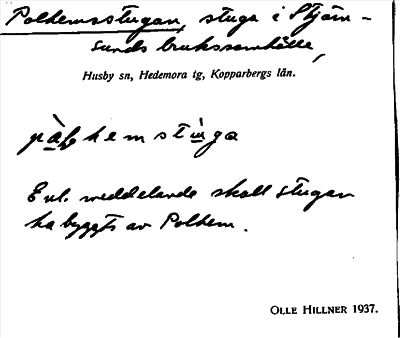 Polhemsstugan, stuga i Stjärn-
sunds brukssamhälle,
Husby sn, Hedemora tg, Kopparbergs län.
pàlhemstùga
Enl. meddelande skall stugan
ha byggts av Polhem.
OLLE HILLNER 1937.